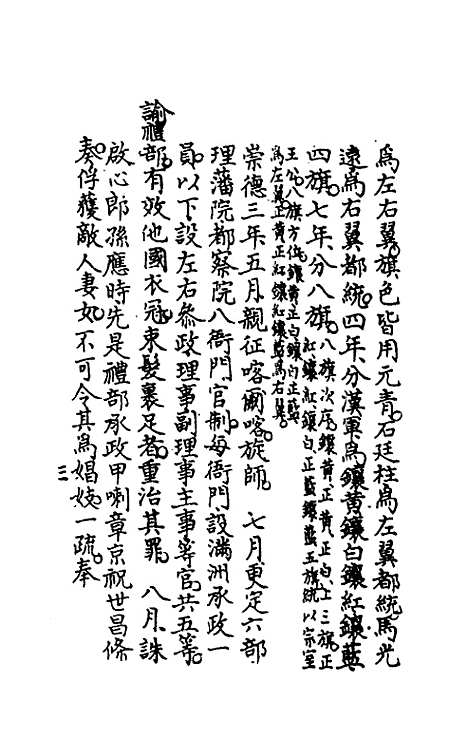 爲左右翼旗色皆用元青石廷柱爲左翼都統馬光
遠爲右翼都統四年分漢軍爲鑲黃鑲白鑲紅鑲藍
四旗七年分八旗八旗次序鑲黃正黃正白上三旗正
紅鑲紅鑲白正藍鑲藍五旗統以宗室
王公八旗方位鑲黃正白鑲白正藍
爲左翼正黃正紅鑲紅鑲藍爲右翼
崇德三年五月親征喀爾喀旋師 七月更定六部
理藩院都察院八衙門官制每衙門設滿洲承政一
員以下設左右叅政理事副理事主事等官共五等
諭禮部有效他國衣冠束髮裹足者重治其罪 八月誅
啟心郎孫應時先是禮部承政甲喇章京祝世昌條
奏俘獲敵人妻女不可令其爲娼妓一疏奉
三